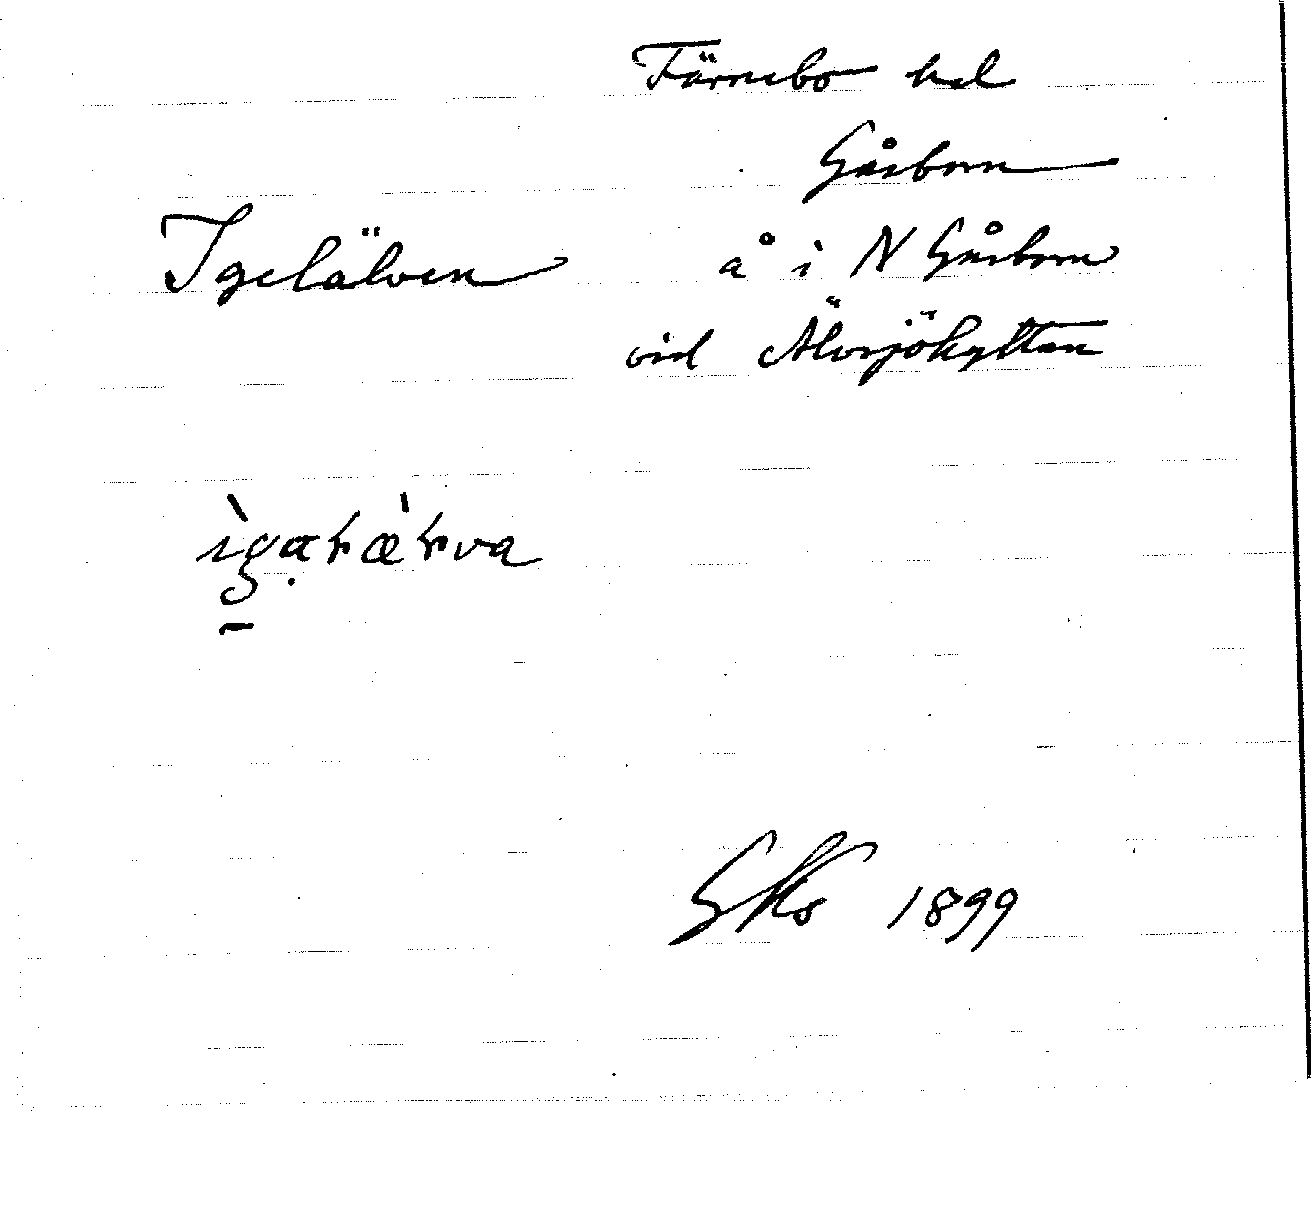 Färnebo hd
Gåsborn
Igelälven å i N Gåsborn
vid Älvsjöhyttan
1899